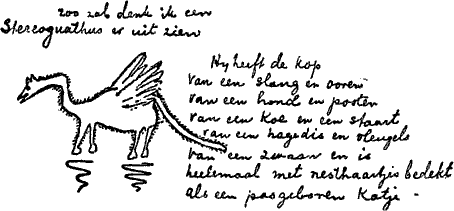 zoo zal denk ik een
Stereognathus er uit zien
Hy heeft de kop
van een slang en ooren
van een hond en pooten
van een koe en een staart
van een hagedis en vleugels
van een zwaan en is
heelemaal met nesthaartjes bedekt
als een pasgeboren katje -